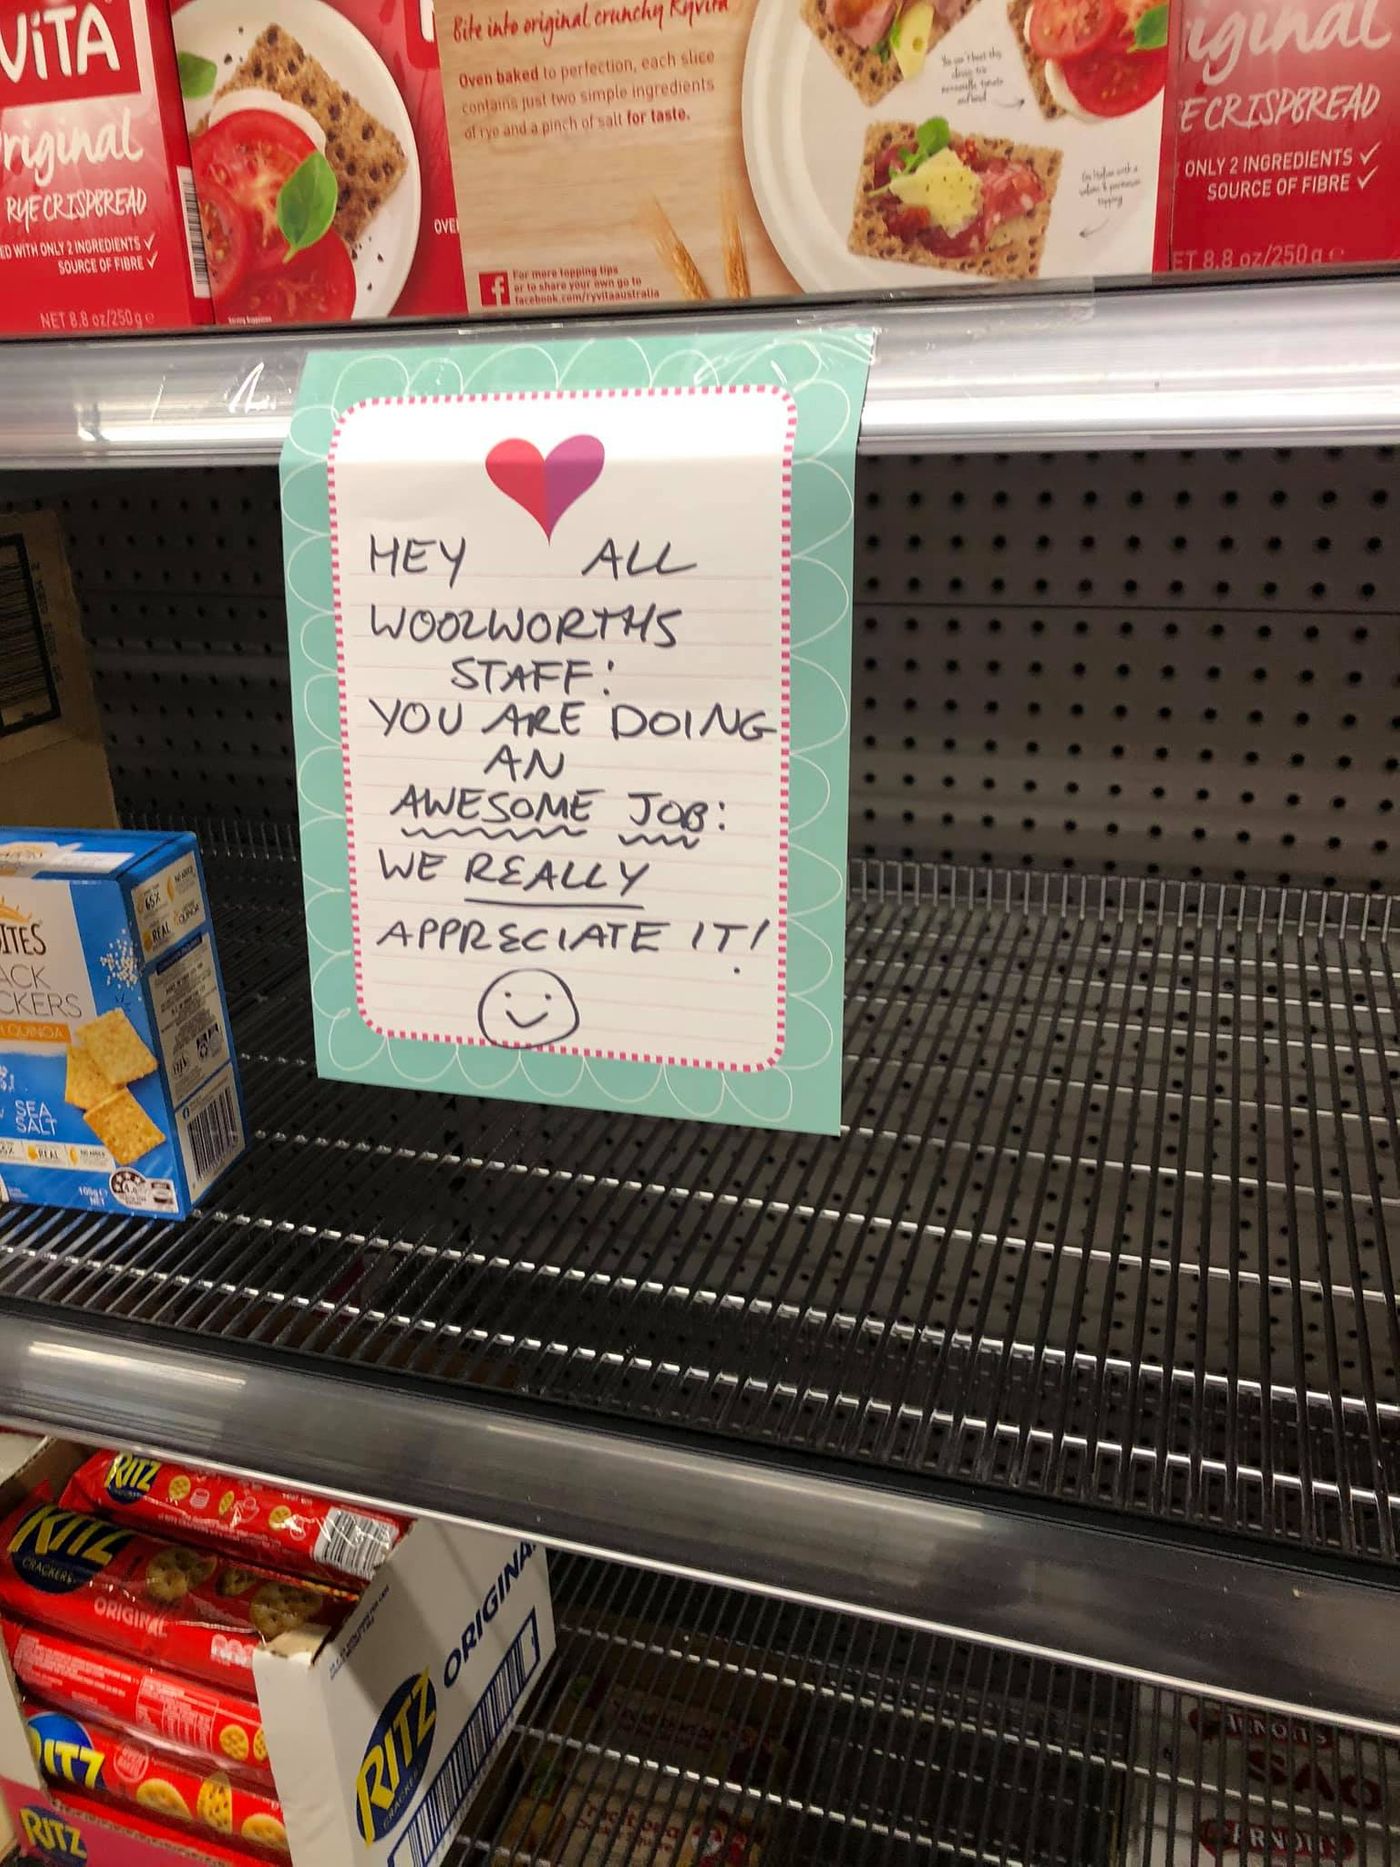 ViTA
Original
RYE CRISPBREAD
ED WITH ONLY 2 INGREDIENTS ✓
SOURCE OF FIBRE ✓
NET 8.8 oz/250g e
OVE
Bite into original crunchy Ryvita
Oven baked to perfection, each slice
contains just two simple ingredients
of rye and a pinch of salt for taste.
f
For more topping tips
or to share your own go to
facebook.com/ryvitaaustralia
iginal
E CRISPBREAD
ONLY 2 INGREDIENTS ✓
SOURCE OF FIBRE ✓
ET 8.8 oz/250g e
HEY ALL
WOOLWORTHS
STAFF:
YOU ARE DOING
AN
AWESOME JOB:
WE REALLY
APPRECIATE IT!
ITES
ACK
CKERS
QUINOA
SEA
SALT
REAL
65%
REAL
QUINOA
100g e
NET
RITZ
RITZ
CRACKERS
ORIGINAL
RITZ
RITZ
RITZ
ORIGINA
ARNOTTS
SAO
ARNOTTS